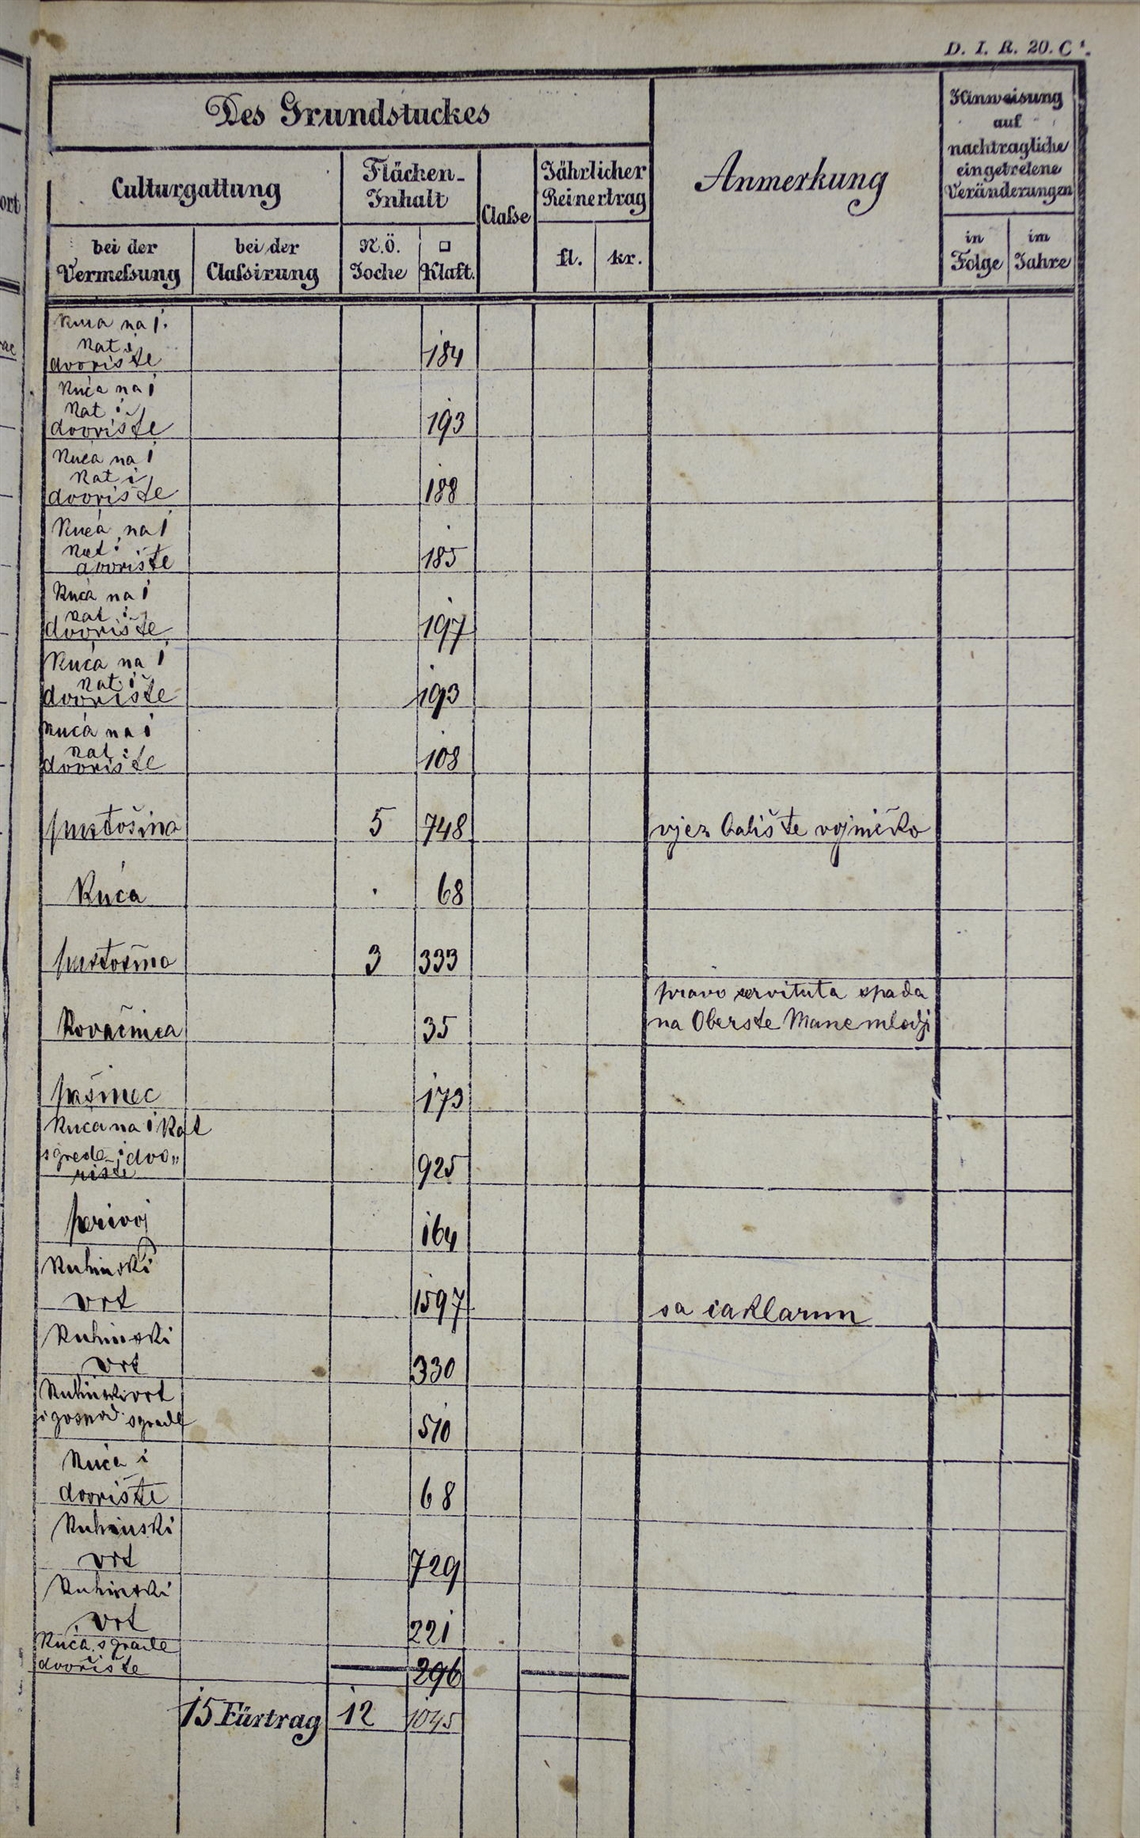 D. I. R. 20. C¹.
Des Grundstuckes
Anmerkung
Hinweisung
auf
nachtragliche
eingetretene
Veränderungen
Culturgattung
Flächen-
Inhalt
Classe
Jährlicher
Reinertrag
bei der
Vermessung
bei der
Classirung
N.Ö.
Joche
□
Klaft.
fl.
kr.
in
Folge
im
Jahre
Kuća na 1.
Kat i
dvorište
184
Kuća na 1
Kat i
dvorište
193
Kuća na 1
Kat i
dvorište
188
Kuća na 1
Kat i
dvorište
185
Kuća na 1
Kat i
dvorište
197
Kuća na 1
Kat i
dvorište
193
Kuća na 1
Kat i
dvorište
108
pustošina 5 748 vjezbalište vojničko
Kuća . 68
pustošina 3 333
pravo servituta spada
Kovačnica 35 na Oberste Mane mlodji
pašinec 173
Kuca na 1 Kat
sgrede i dvo„
rište
925
perivoj 164
Kuhinski
vrt 1597 sa caklarum
Kuhinski
vrt 330
Kuhinski vrt
i gospod. sgrade 510
Kuća i
dvorište 68
Kuhinski
vrt 729
Kuhinski
vrt 221
Kuća, sgrade
dvorište 296
15 Fürtrag 12 1045